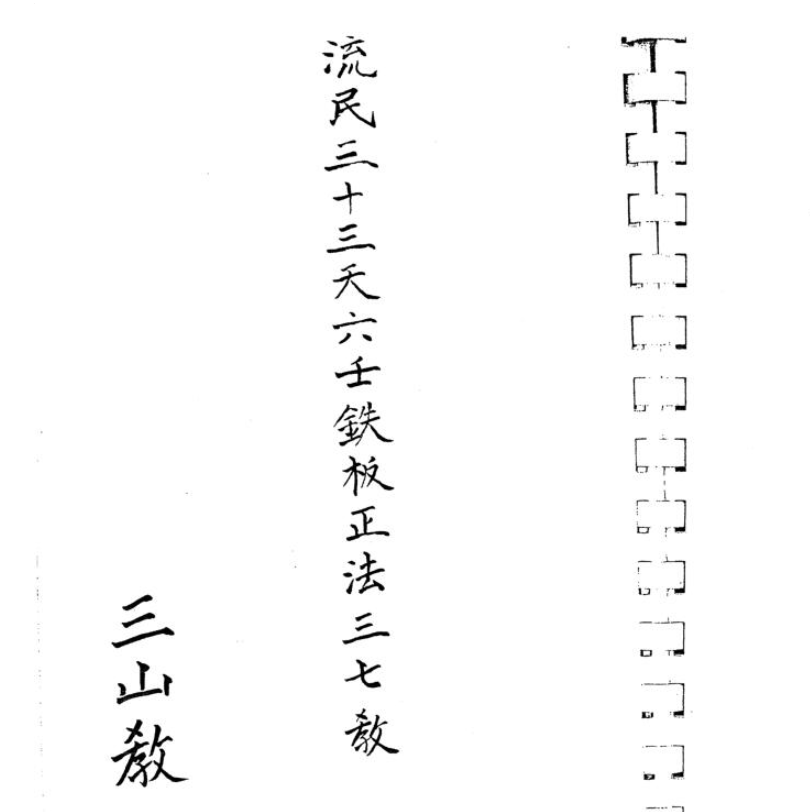 流民三十三天六壬鉄板正法三七教
三山教